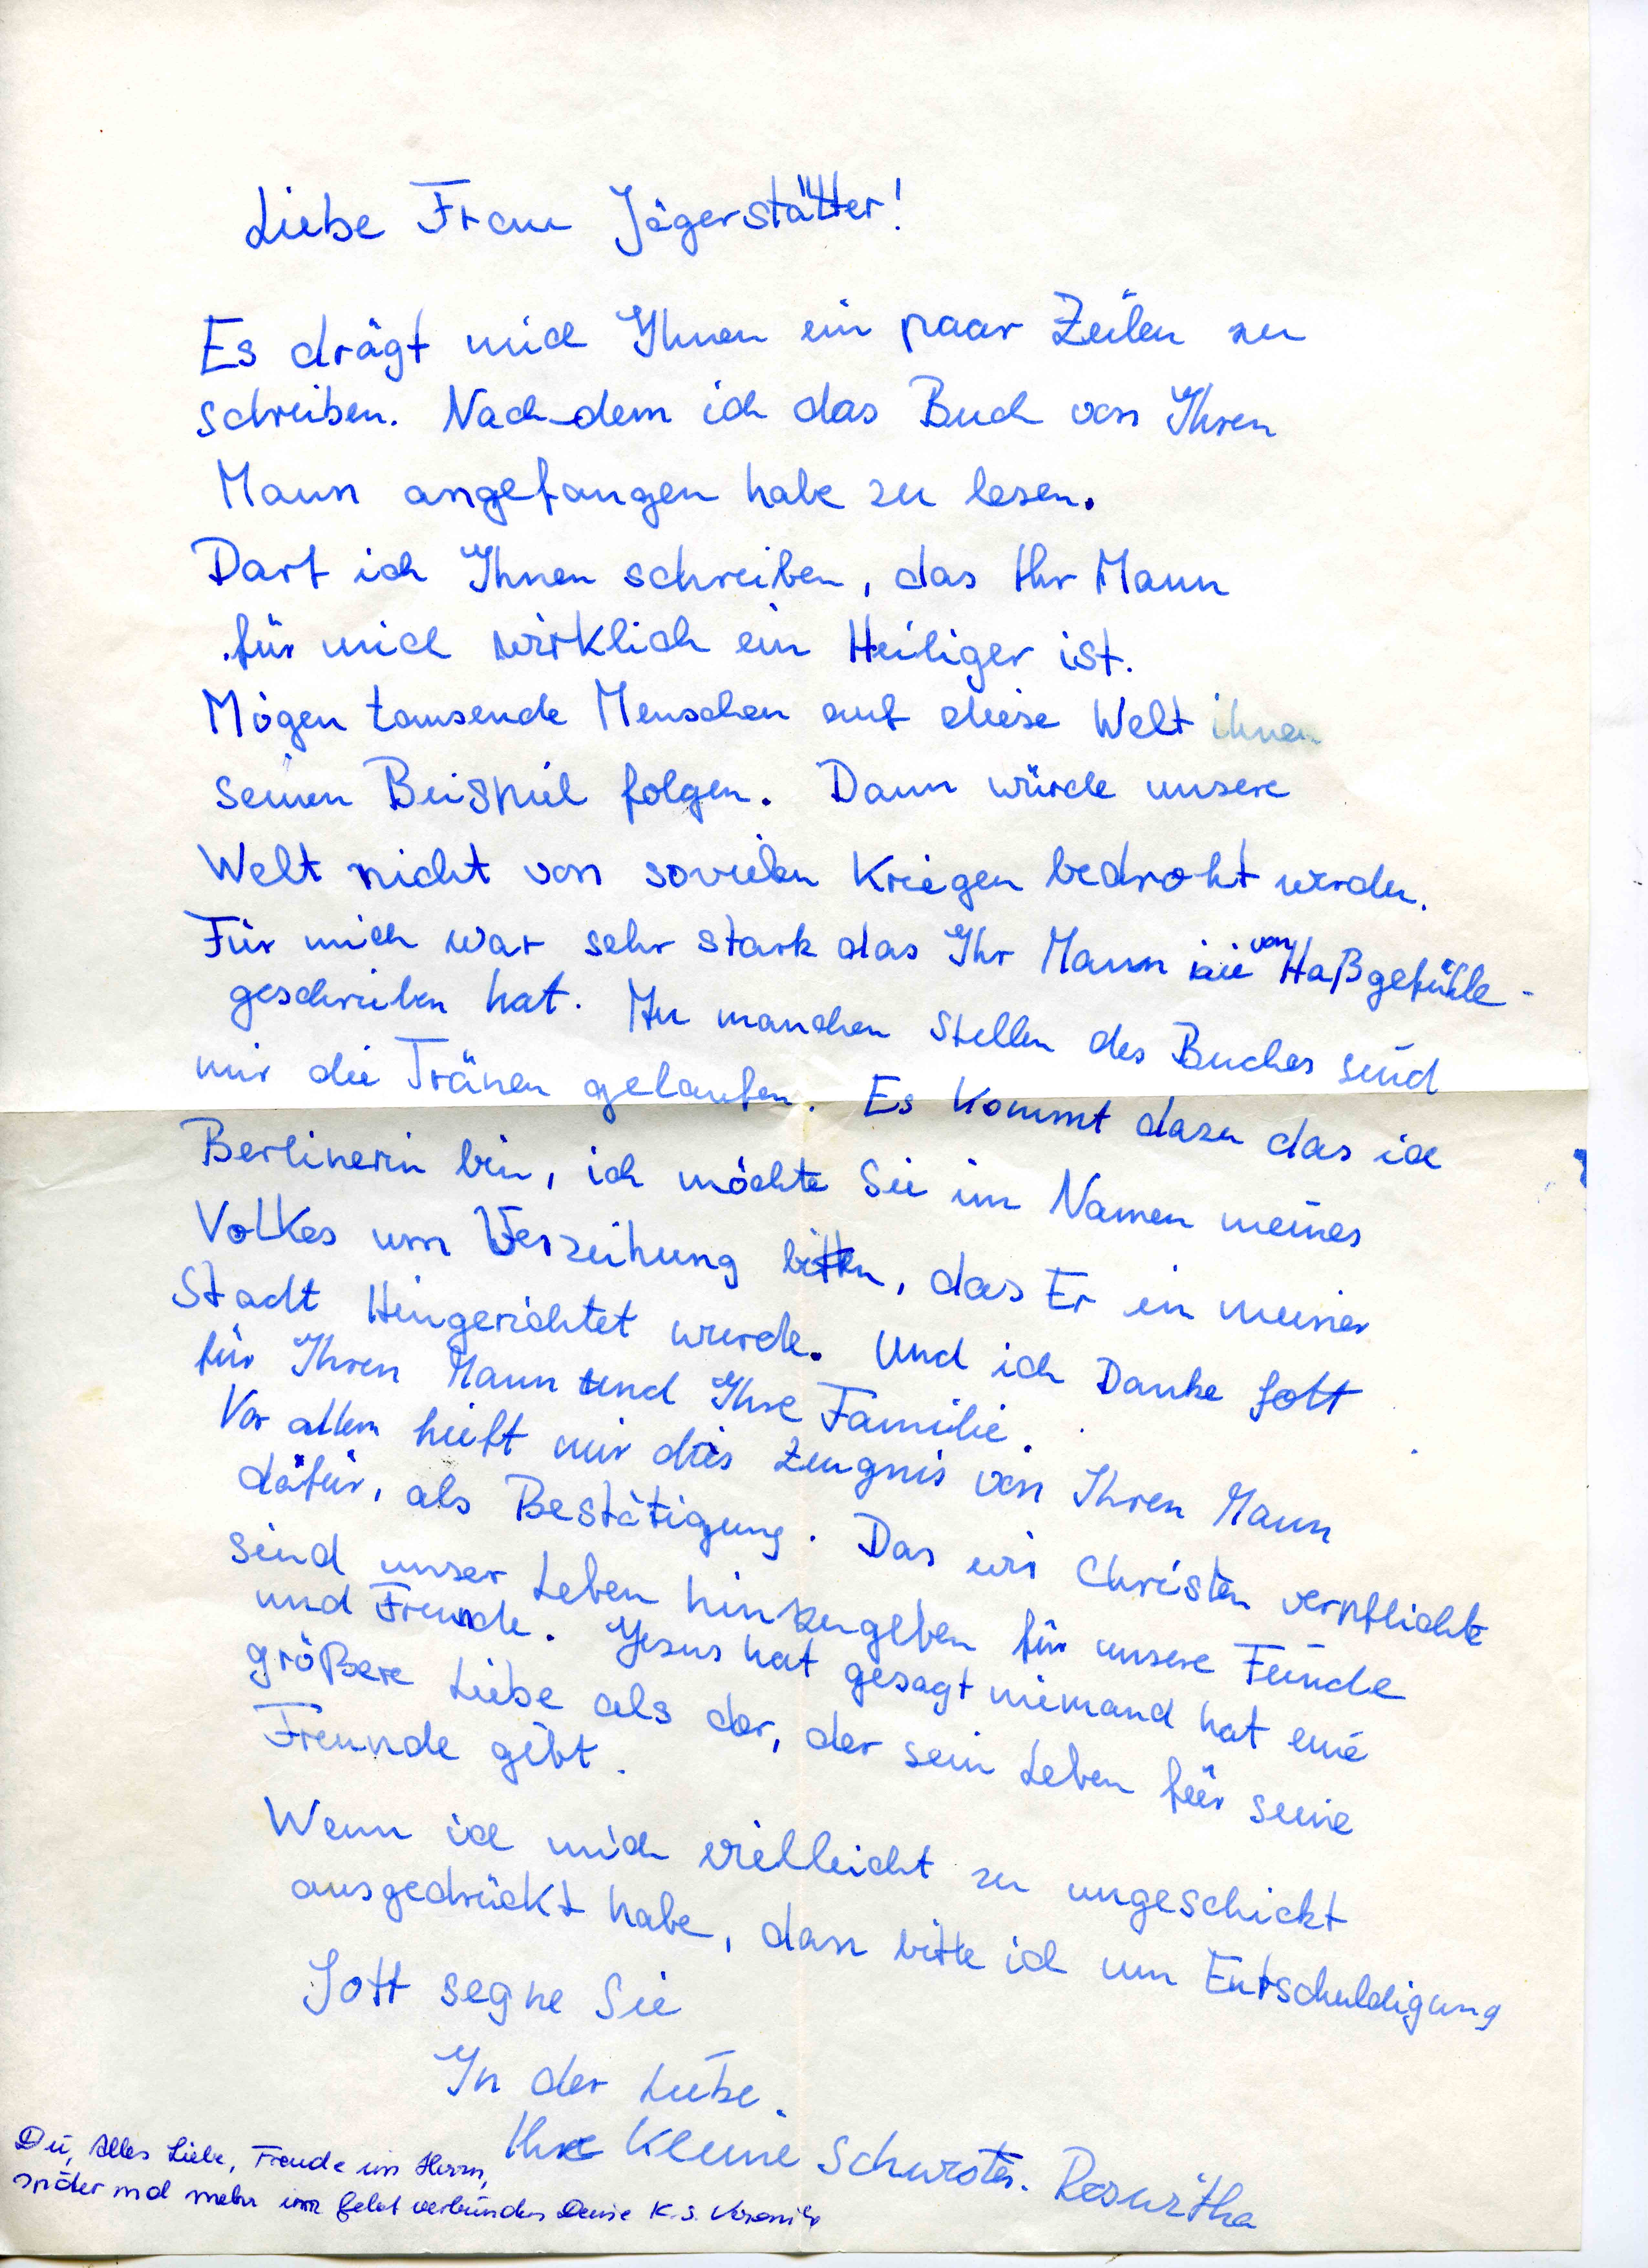 Liebe Frau Jägerstätter!
Es drägt mich Ihnen ein paar Zeilen zu
schreiben. Nach dem ich das Buch von Ihren
Mann angefangen habe zu lesen.
Darf ich Ihnen schreiben, das Ihr Mann
für mich wirklich ein Heiliger ist.
Mögen tausende Menschen auf diese Welt ihnen
seinen Beispiel folgen. Dann würde unsere
Welt nicht von sovielen Kriegen bedroht werden.
Für mich war sehr stark das Ihr Mann nie von Haßgefühle
geschrieben hat. An manchen Stellen des Buches sind
mir die Tränen gelaufen. Es kommt dazu das ich
Berlinerin bin, ich möchte Sie im Namen meines
Volkes um Verzeihung bitten, das Er in meiner
Stadt Hingerichtet wurde. Und ich Danke Gott
für Ihren Mann und Ihre Familie.
Vor allem hielft mir das Zeugnis von Ihren Mann
dafür, als Bestätigung. Das wir Christen verpflichte
sind unser Leben hinzugeben für unsere Feinde
und Freunde. Jesus hat gesagt niemand hat eine
größere Liebe als der, der sein Leben für seine
Freunde gibt.
Wenn ich mich vielleicht zu ungeschickt
ausgedrückt habe, dan bitte ich um Entschuldigung
Gott segne Sie
In der Liebe.
Ihre Kleine Schwester.
Du, Alles Liebe, Freude im Herrn,
später mal mehr im Gebet verbunden Deine K. S.